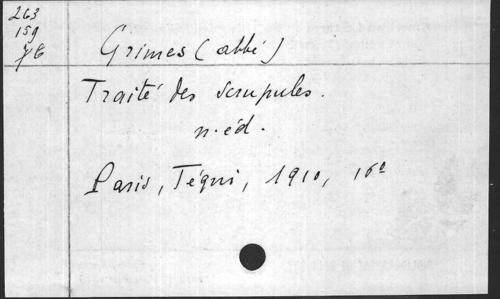 263
159
Grimes (abbé)
Traité des scrupules.
n. éd.
Paris, Téqui, 1910, 16º